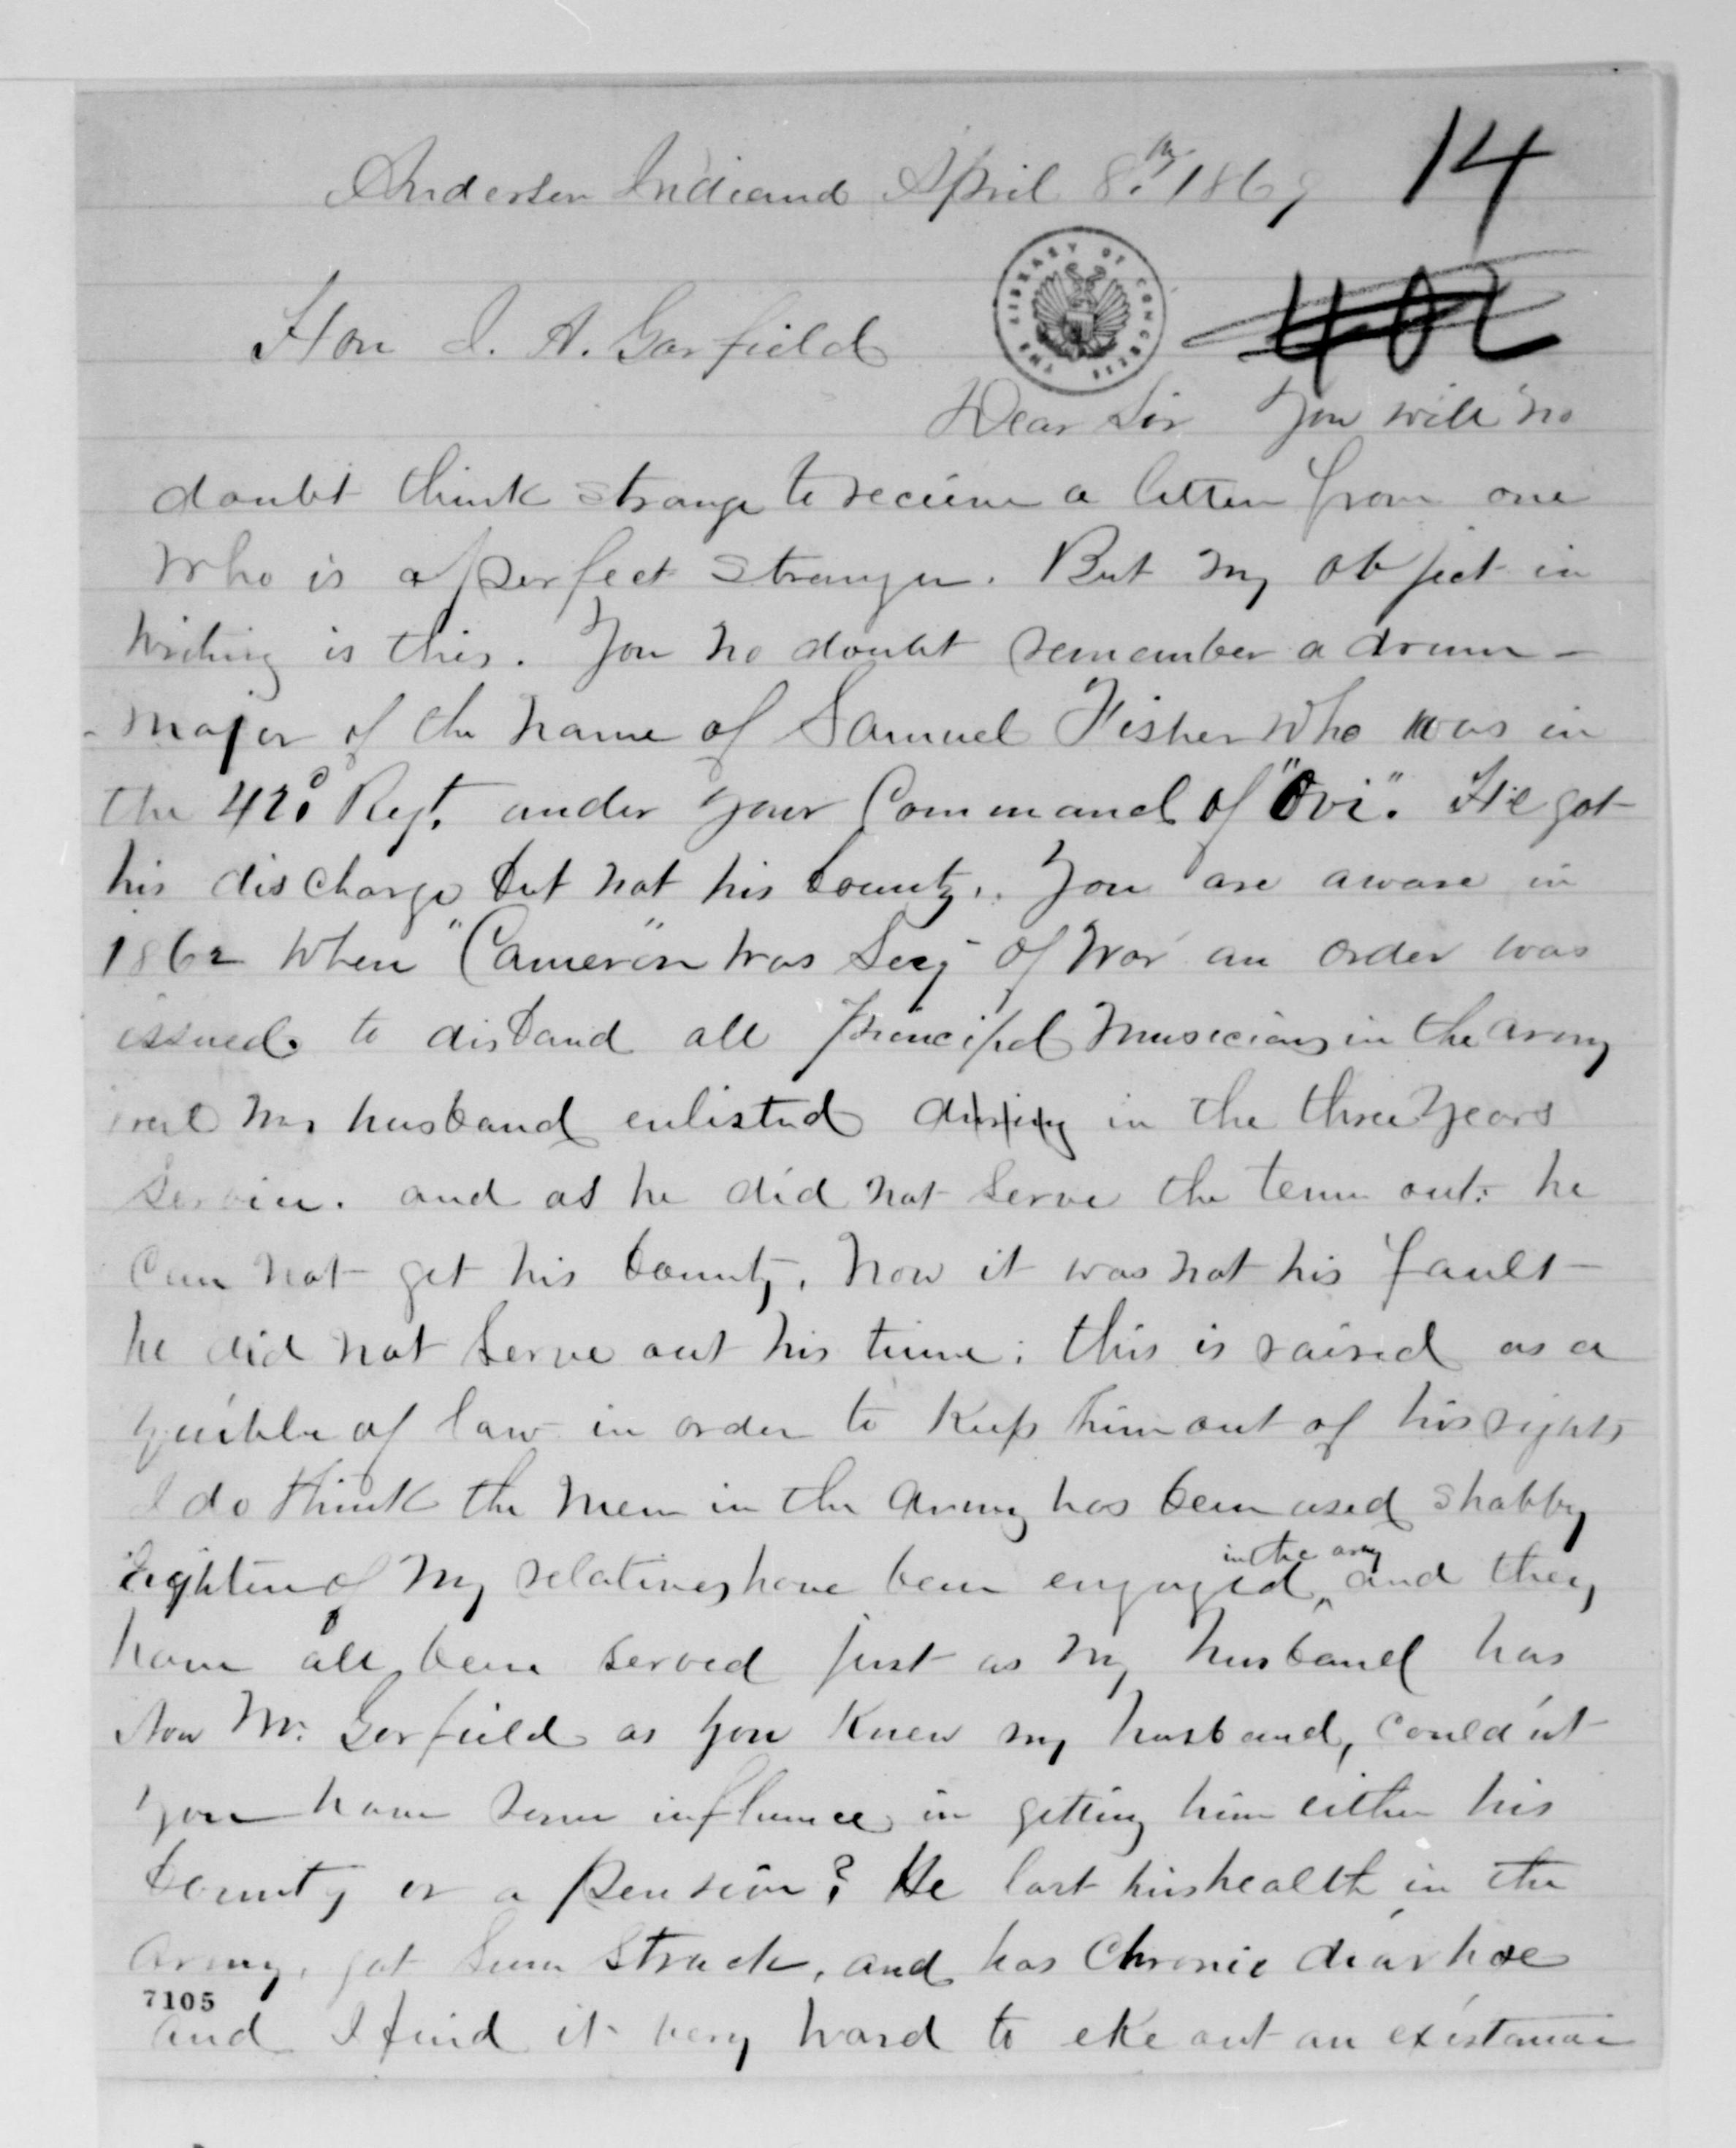 Anderson Indiana April 8th 1869
14
THE LIBRARY OF CONGRESS
402
Hon J. A. Garfield
Dear Sir You will no
doubt think strange to recieve a letter from one
who is a perfect stranger. But my object in
writing is this. You no doubt remember a drum-
-major of the name of Samuel Fisher who was in
the 42d Regt. under your Command of "Ovi". He got
his discharge but not his bounty. You are aware in
1862 when "Cameron" was Secy of War an order was
issued to disband all principal musicians in the army
my husband enlisted during in the three years
service. and as he did not serve the term out. he
can not get his bounty. Now it was not his fault
he did not serve out his time; this is raised as a
quibble of law in order to keep him out of his rights
I do think the men in the army has been used shabby
Eighteen of my relatives have been engaged in the army and they
have all been served just as my husband has
Now Mr. Garfield as you knew my husband, could'nt
you have some influence in getting him either his
bounty or a pension? He lost his health in the
army, got Sun Struck, and has Chronic diarhoe
7105
and I find it very hard to eke out an existance